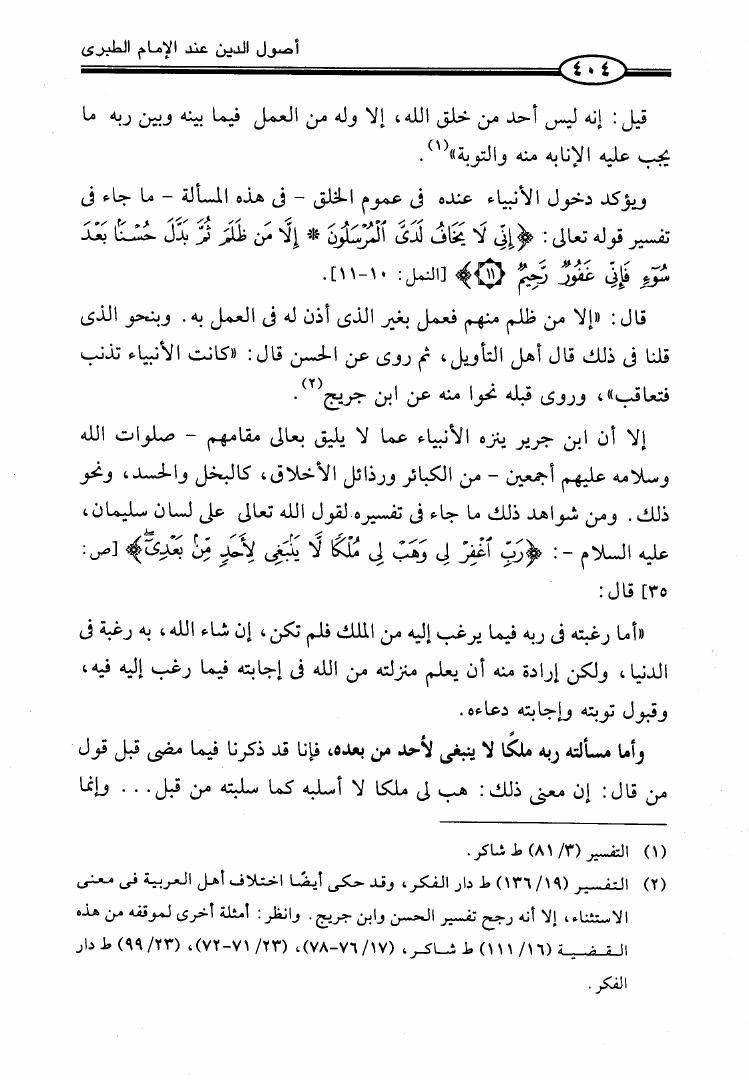 أصول الدين عند الإمام الطبرى
٤٠٤
قيل: إنه ليس أحد من خلق الله، إلا وله من العمل فيما بينه وبين ربه ما
يجب عليه الإنابه منه والتوبة»(١).
ويؤكد دخول الأنبياء عنده فى عموم الخلق - فى هذه المسألة - ما جاء فى
تفسير قوله تعالى: ﴿إِنِّي لَا يَخَافُ لَدَيَّ الْمُرْسَلُونَ * إِلَّا مَن ظَلَمَ ثُمَّ بَدَّلَ حُسْنًا بَعْدَ
سُوٓءٍ فَإِنِّي غَفُورٌ رَّحِيمٌ ۝١١﴾ [النمل: ١٠-١١].
قال: «إلا من ظلم منهم فعمل بغير الذى أذن له فى العمل به. وبنحو الذى
قلنا فى ذلك قال أهل التأويل، ثم روى عن الحسن قال: «كانت الأنبياء تذنب
فتعاقب»، وروى قبله نحوا منه عن ابن جريج(٢).
إلا أن ابن جرير ينزه الأنبياء عما لا يليق بعالى مقامهم - صلوات الله
وسلامه عليهم أجمعين - من الكبائر ورذائل الأخلاق، كالبخل والحسد، ونحو
ذلك. ومن شواهد ذلك ما جاء فى تفسيره لقول الله تعالى على لسان سليمان،
عليه السلام -: ﴿رَبِّ اغْفِرْ لِي وَهَبْ لِي مُلْكًا لَّا يَنۢبَغِي لِأَحَدٍ مِّنۢ بَعْدِيٓ﴾ [ص:
٣٥] قال:
«أما رغبته فى ربه فيما يرغب إليه من الملك فلم تكن، إن شاء الله، به رغبة فى
الدنيا، ولكن إرادة منه أن يعلم منزلته من الله فى إجابته فيما رغب إليه فيه،
وقبول توبته وإجابته دعاءه.
وأما مسألته ربه ملكًا لا ينبغى لأحد من بعده، فإنا قد ذكرنا فيما مضى قبل قول
من قال: إن معنى ذلك: هب لى ملكا لا أسلبه كما سلبته من قبل... وإنما
(١) التفسير (٣/ ٨١) ط شاكر.
(٢) التفسير (١٩/ ١٣٦) ط دار الفكر، وقد حكى أيضًا اختلاف أهل العربية فى معنى
الاستثناء، إلا أنه رجح تفسير الحسن وابن جريج. وانظر: أمثلة أخرى لموقفه من هذه
القضية (١٦/ ١١١) ط شاكر، (١٧/ ٧٦-٧٨)، (٢٣/ ٧١-٧٢)، (٢٣/ ٩٩) ط دار
الفكر.